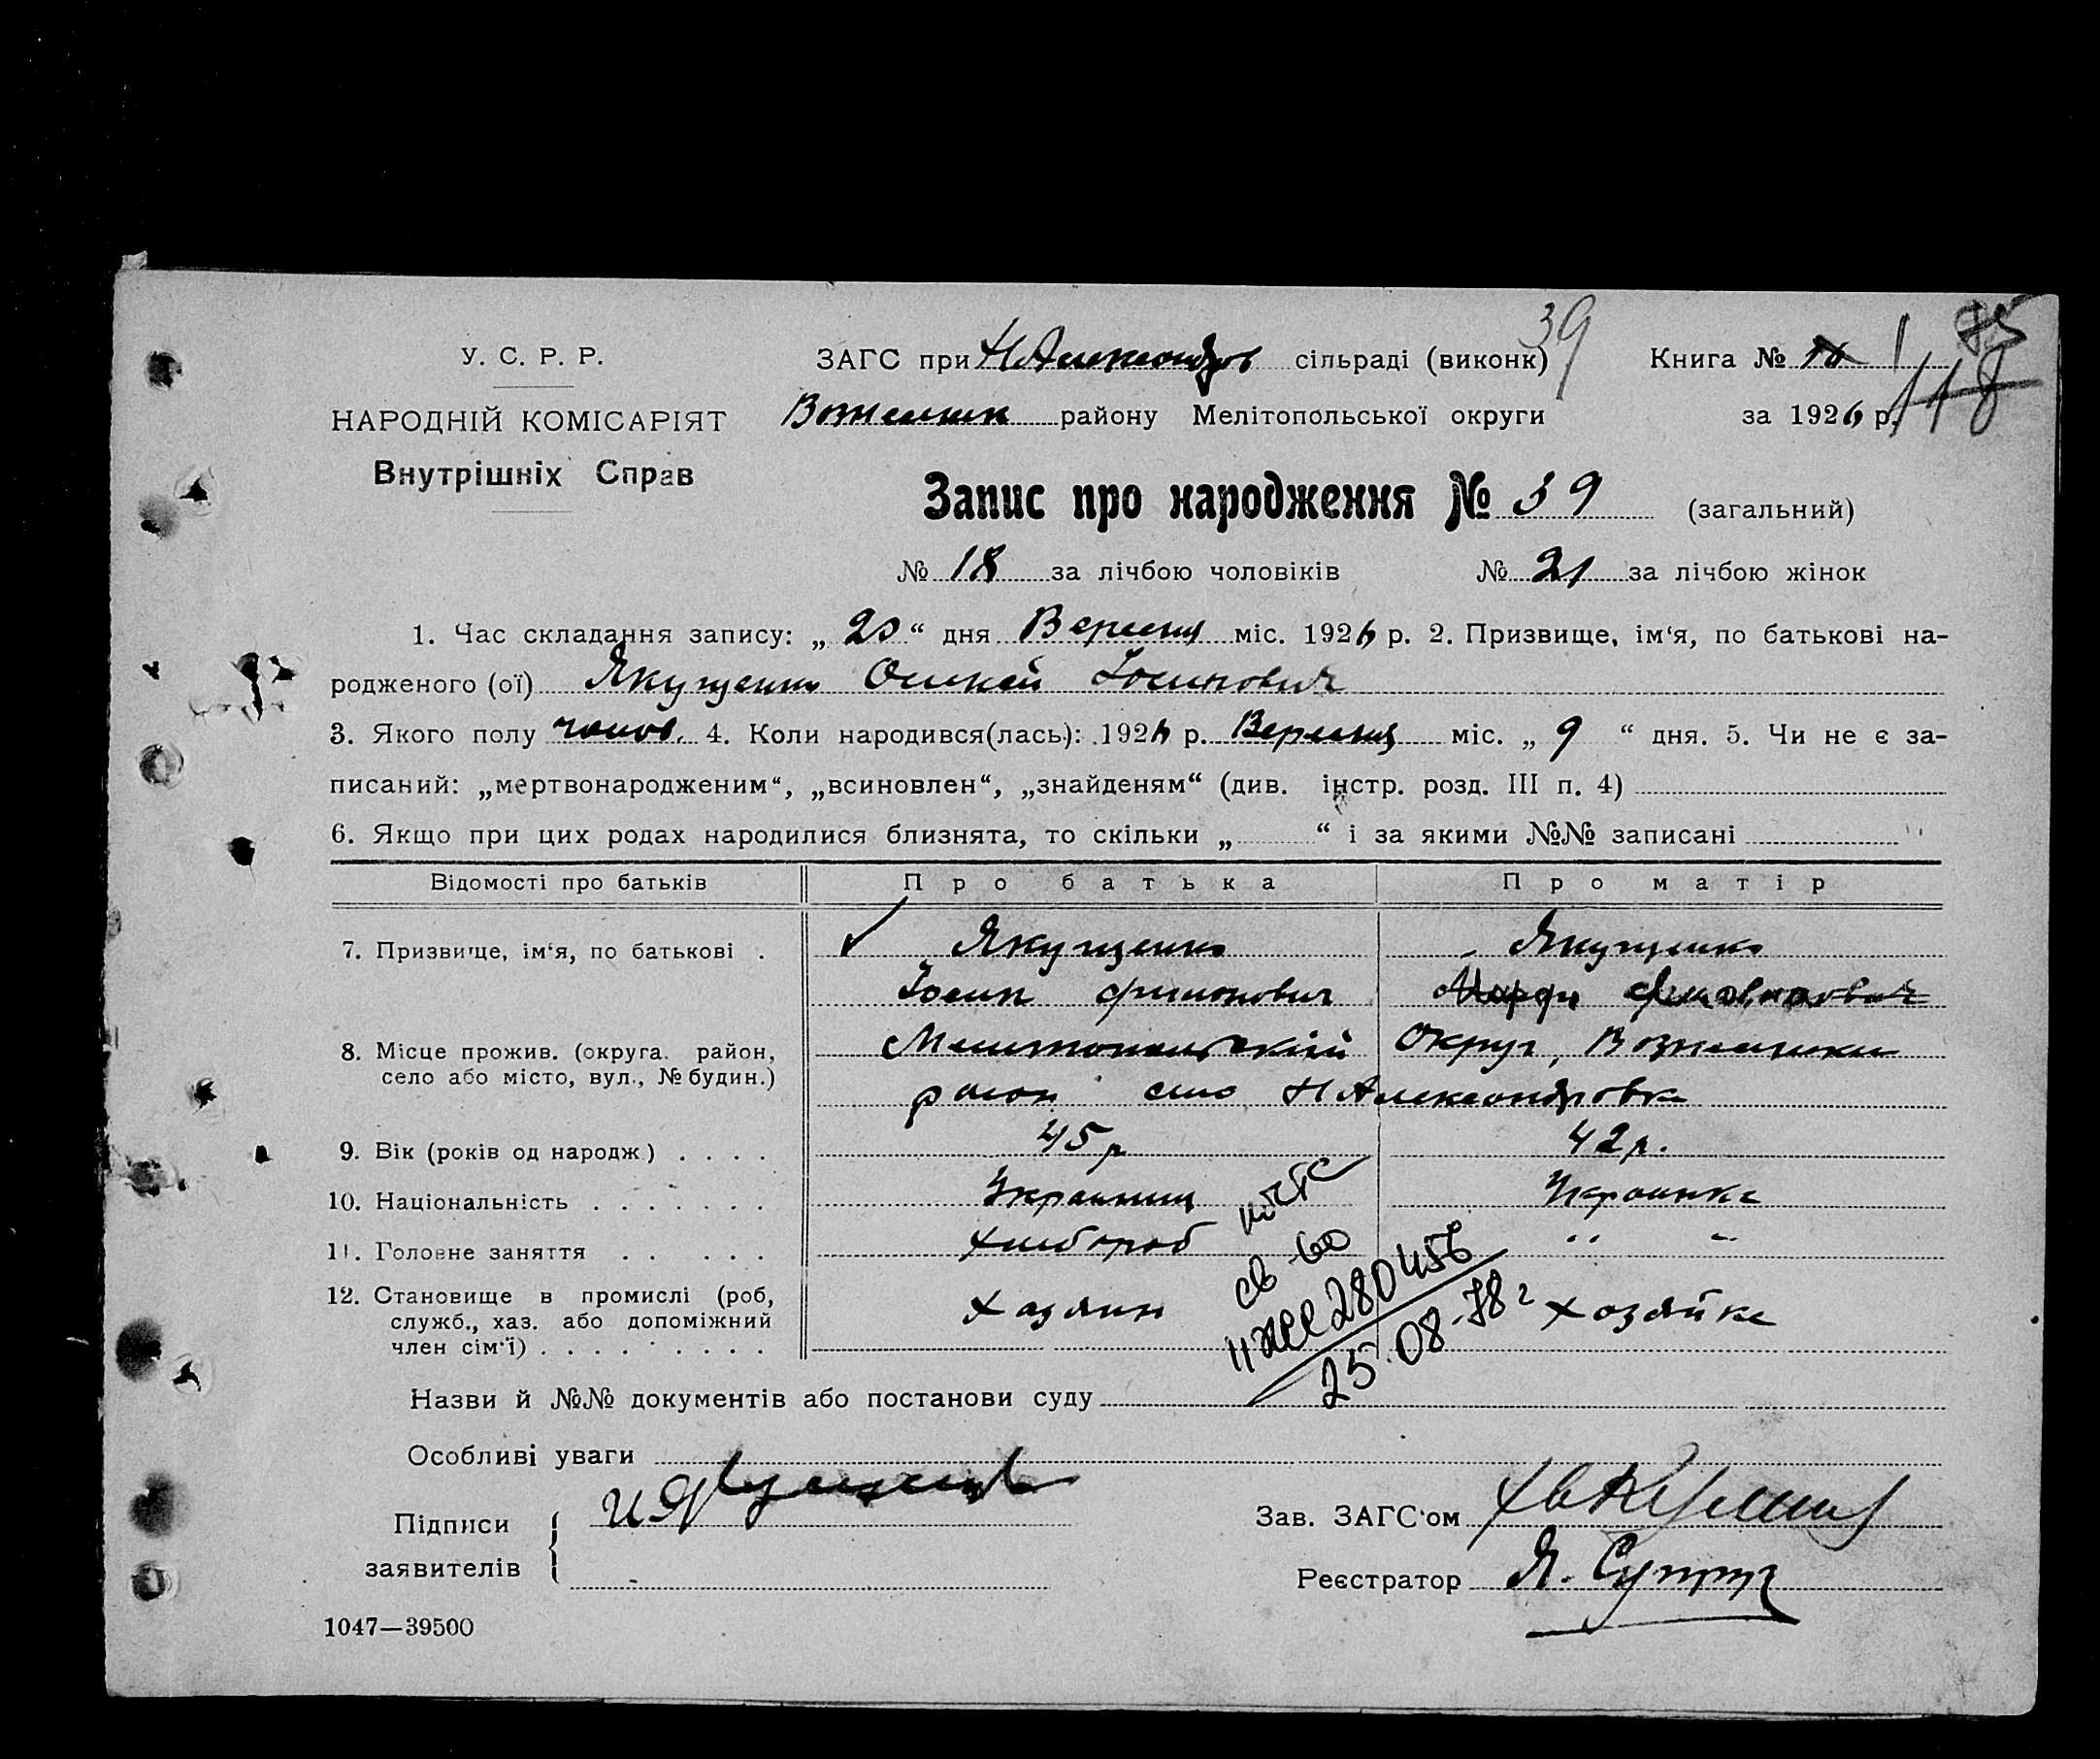 39
У. С. Р. Р.
ЗАГС при Н Александров сільраді (виконк)
Книга № 1
75
118
НАРОДНІЙ КОМІСАРІЯТ
району Мелітопольської округи
за 1926 р.
Внутрішніх Справ
Запис про народження № 39 (загальний)
№ 18 за лічбою чоловіків № 21 за лічбою жінок
1. Час складання запису: „ 20 “ дня Вересня міс. 1926 р. 2. Призвище, ім‘я, по батькові на-
родженого (ої) Якущенко
3. Якого полу чолов. 4. Коли народився(лась): 1926 р. Вересня міс. „ 9 “ дня. 5. Чи не є за-
писаний: „мертвонародженим“, „всиновлен“, „знайденям“ (див. інстр. розд. III п. 4)
6. Якщо при цих родах народилися близнята, то скільки „ “ і за якими №№ записані
Відомості про батьків Про батька Про матір
7. Призвище, ім‘я, по батькові . Якущенко Якущенко
8. Місце прожив. (округа. район, Мелитопольский Округ,
село або місто, вул., № будин.)
район село Н Александровка
9. Вік (років од народж.) . . . . 45 р 42 р.
10. Національність . . . . . . . Украинец Украинка
11. Головне заняття . . . . . Хлебороб " "
12. Становище в промислі (роб, Хазяин Хозяйка
служб., хаз. або допоміжний
член сім‘ї) . . . . . . . . .
280456
25.08.78 г
Назви й №№ документів або постанови суду
Особливі уваги
Підписи
заявителів
Зав. ЗАГС‘ом
Реєстратор Я. Супрун
1047—39500